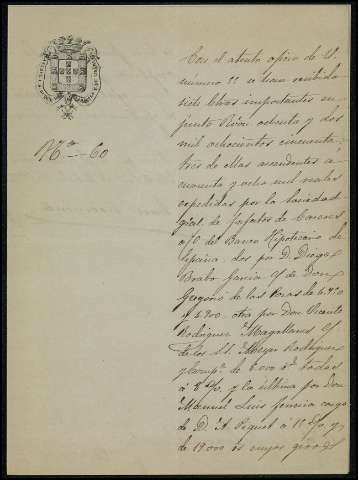 Nº 60
Con el atento oficio de U.
número 22 se han recibido
siete letras importantes en
junto Rvon ochenta y dos
mil ochocientos cincuenta
tres de ellas ascendentes a
cuarenta y ocho mil reales
expedidas por la Sociedad
gral. de fosfatos de Caceres
a/c del Banco Hipotecario de
España, dos por D. Diego
Brabo Garcia y de Don
Gregorio de las Heras de 6.950
y 2.900. otra por Don Vicente
Rodriguez Magallanes y
de los SS. Meyer Rodriguez
y Compª. de 6.000 rs. todas
á 8 d/v. y la última por Don
Manuel Luis Ferreira cargo
de D. A. Piquet á 15 d/v. y
de 19.000 rs cuyos giros